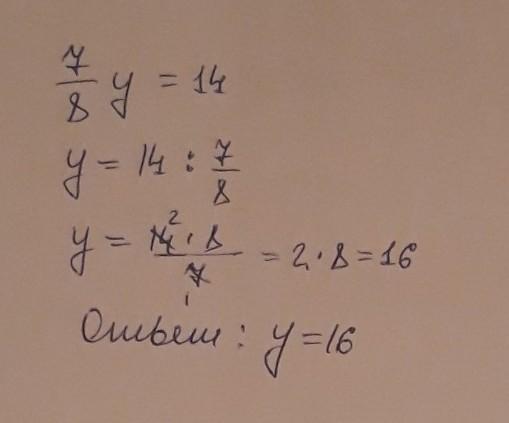 7/8 y = 14
y = 14 : 7/8
y = 14² · 8 / 7₁ = 2 · 8 = 16
Ответ: y = 16